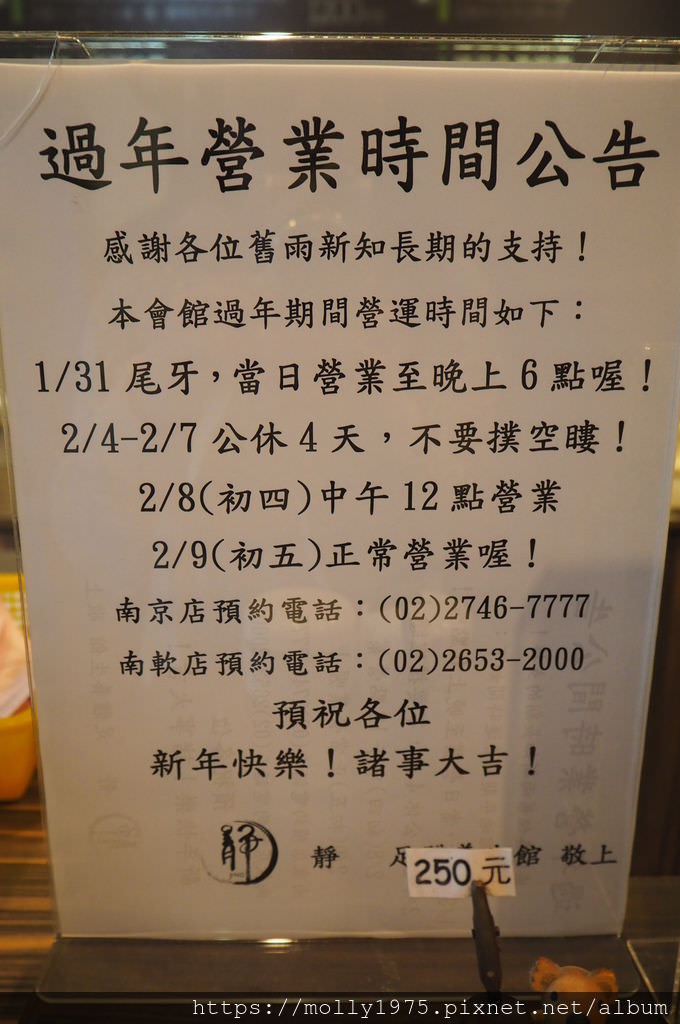 過年營業時間公告
感謝各位舊雨新知長期的支持！
本會館過年期間營運時間如下：
1/31 尾牙，當日營業至晚上 6 點喔！
2/4-2/7 公休 4 天，不要撲空瞜！
2/8(初四)中午 12 點營業
2/9(初五)正常營業喔！
南京店預約電話：(02)2746-7777
南軟店預約電話：(02)2653-2000
預祝各位
新年快樂！諸事大吉！
靜 靜 足 館 敬上
250元
https://molly1975.pixnet.net/album